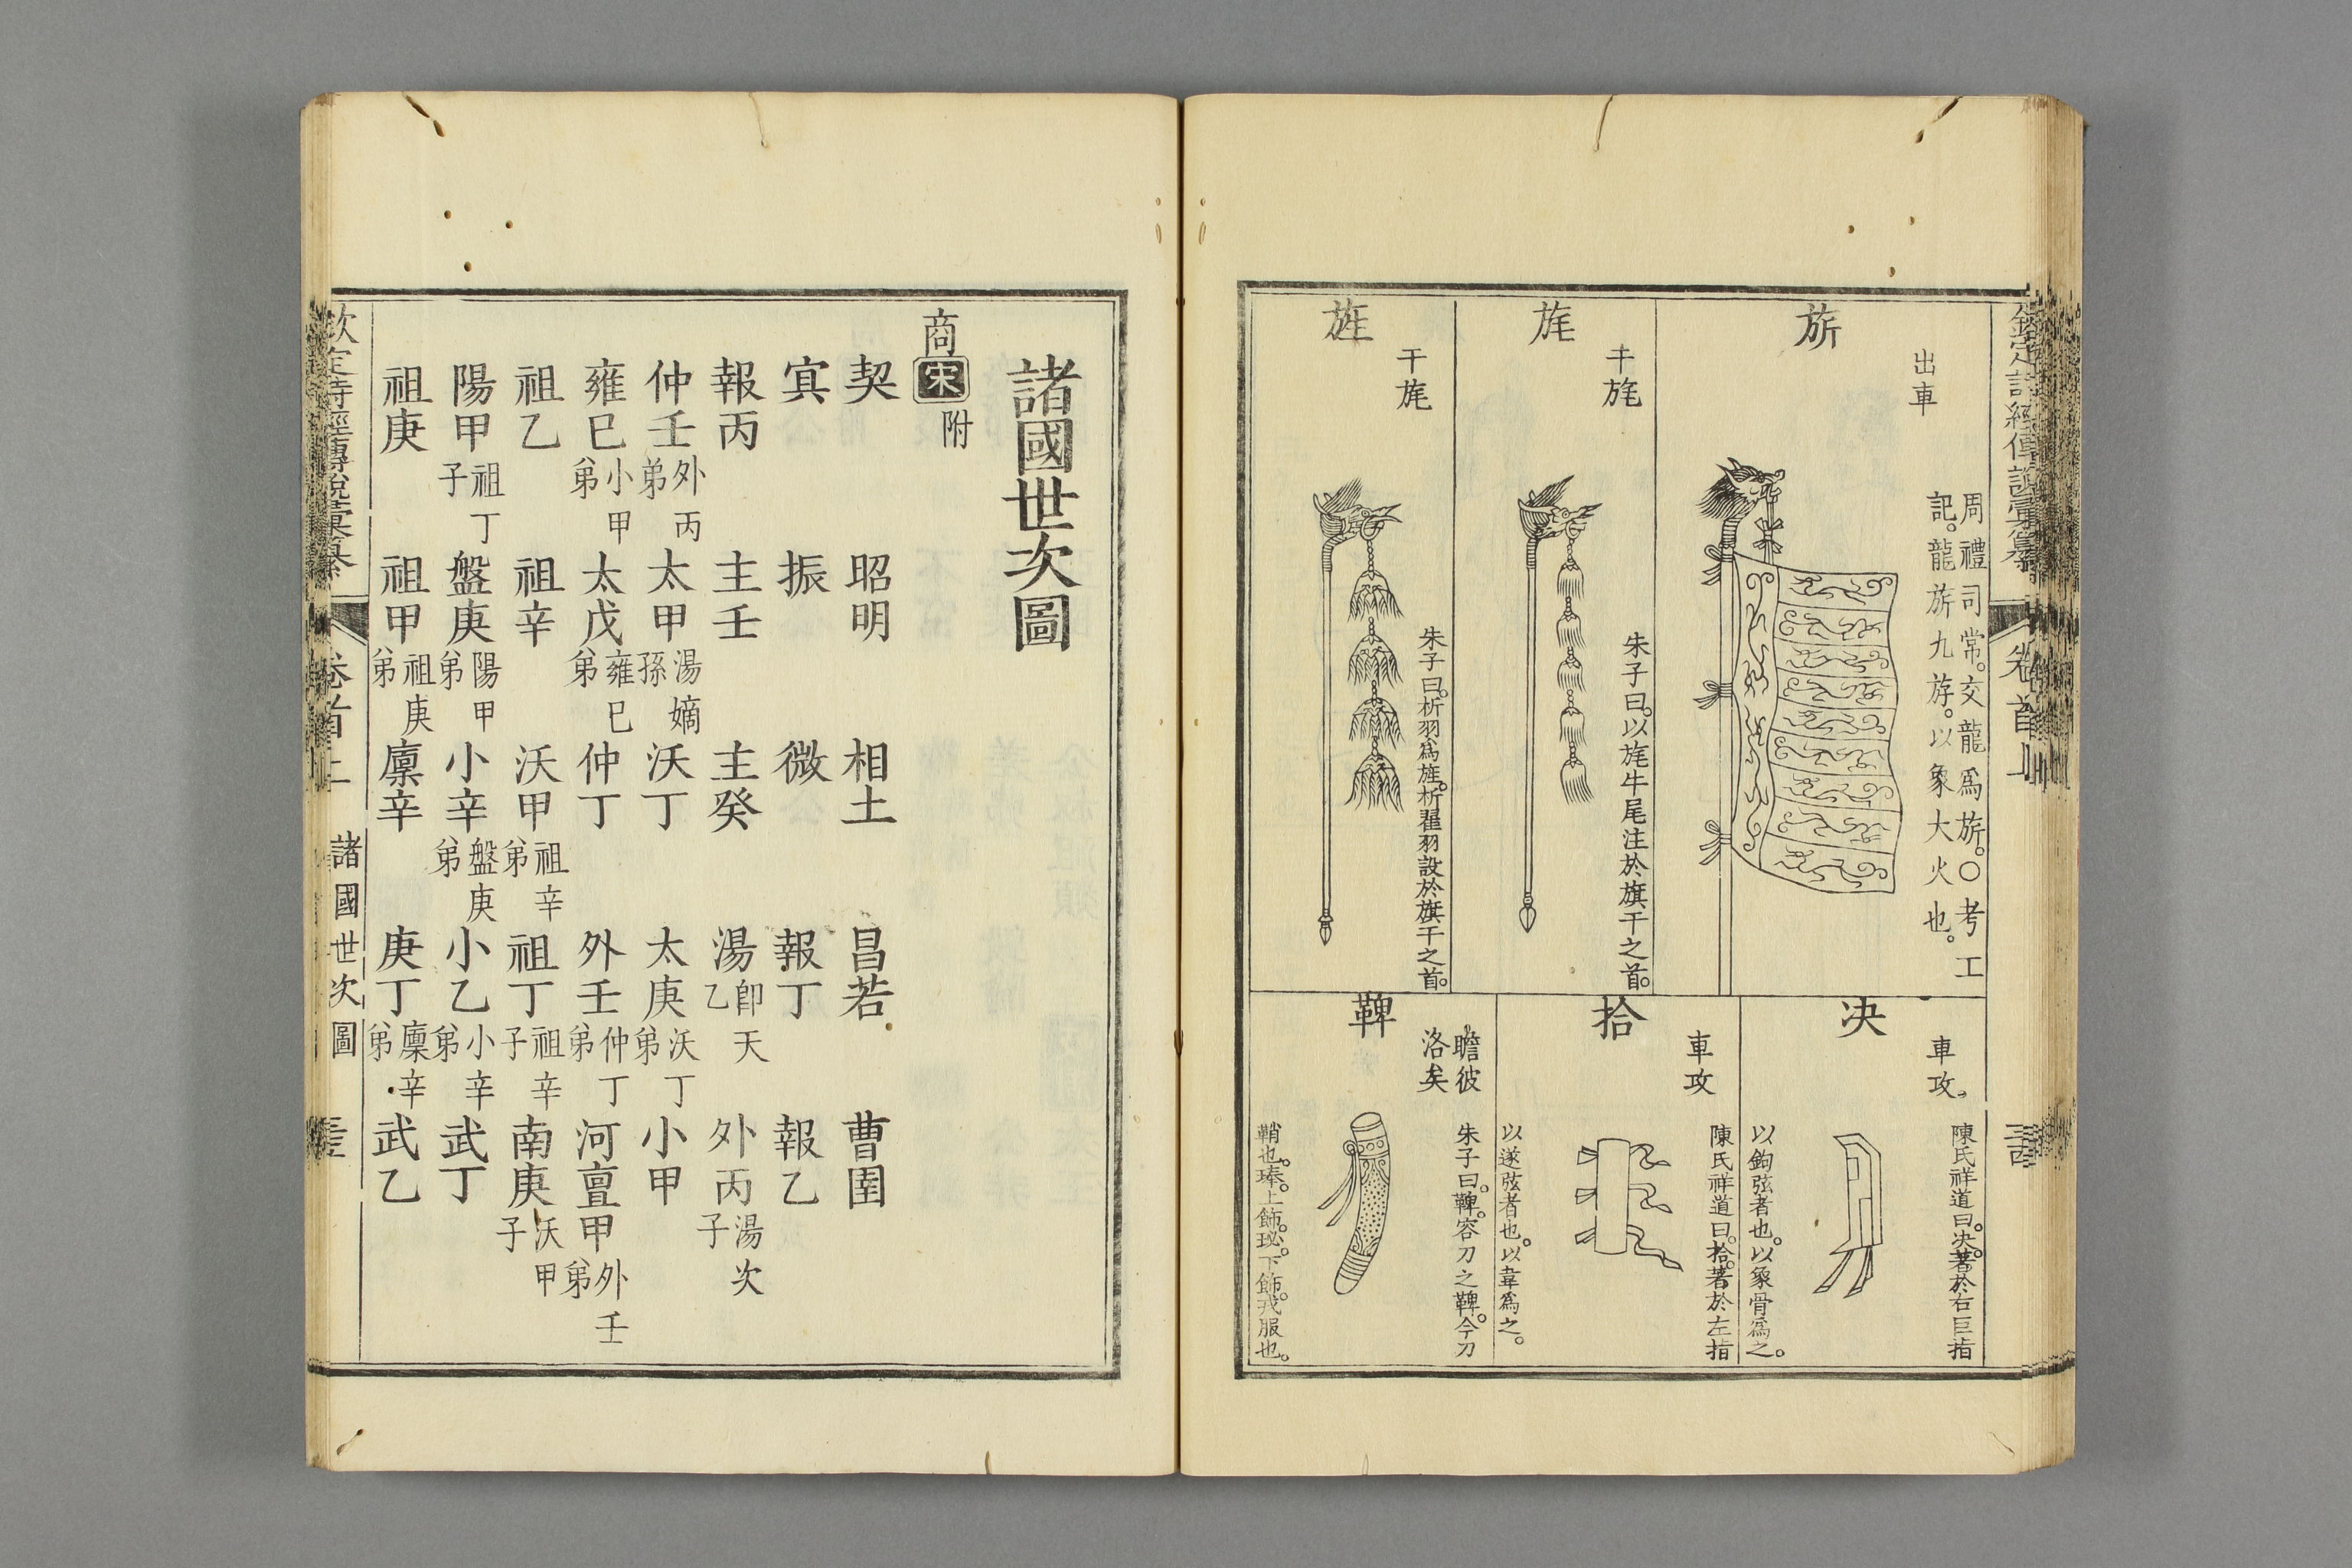 欽定詩經傳說彙纂 卷首上
旂
出車
周禮司常。交龍爲旂。○考工
記。龍旂九斿。以象大火也。
旄
干旄
朱子曰。以旄牛尾注於旗干之首。
旌
干旄
朱子曰。析羽爲旌。析翟羽設於旗干之首。
决
車攻。
陳氏祥道曰。决。著於右巨指
以鉤弦者也。以象骨爲之。
拾
車攻
陳氏祥道曰。拾。著於左指
以遂弦者也。以韋爲之。
鞞
瞻彼
洛矣
朱子曰。鞞。容刀之鞞。今刀
鞘也。琫。上飾。珌。下飾。戎服也。
諸國世次圖
商 宋 附
契 昭明 相土 昌若 曹圉
㝠 振 微 報丁 報乙
報丙 主壬 主癸 湯 卽天乙 外丙 湯次子
仲壬 外丙弟 太甲 湯嫡孫 沃丁 太庚 沃丁弟 小甲
雍巳 小甲弟 太戊 雍巳弟 仲丁 外壬 仲丁弟 河亶甲 外壬弟
祖乙 祖辛 沃甲 祖辛弟 祖丁 祖辛子 南庚 沃甲子
陽甲 祖丁子 盤庚 陽甲弟 小辛 盤庚弟 小乙 小辛弟 武丁
祖庚 祖甲 祖庚弟 廩辛 庚丁 廩辛弟 武乙
欽定詩經傳說彙纂 卷首上 諸國世次圖